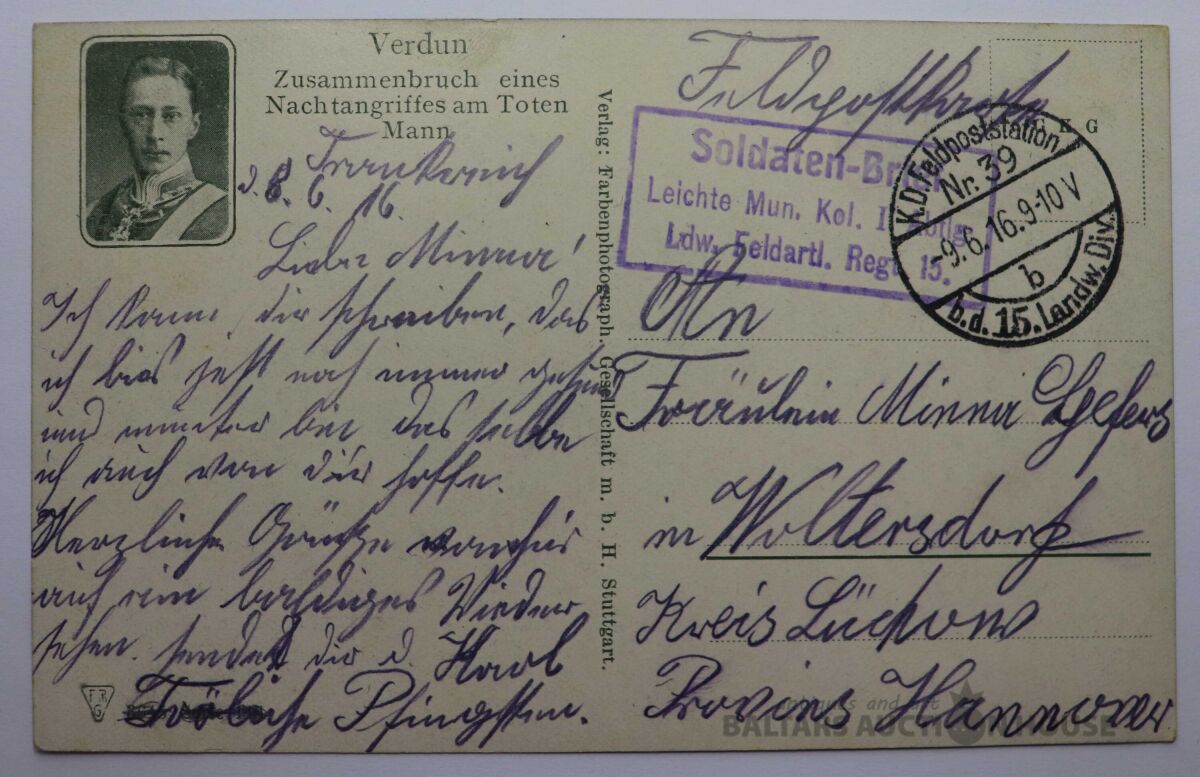 Verdun
Zusammenbruch eines
Nachtangriffes am Toten
Mann
Frankreich
d. 8. 6. 16.
Liebe Minna!
Ich kann dir schreiben, das
ich bies jetzt noch immer gesund
und munter bin das selbe
ich auch von dir hoffe.
Herzliche Grüße von hir
auf ein baldiges Wieder
sehen. sendet dir d. Karl
Fröliche Pfingsten.
F R G
Verlag: Farbenphotograph. Gesellschaft m. b. H. Stuttgart.
Feldpostkarte
G K G
Soldaten-Brief
Leichte Mun. Kol. I. Abtlg.
Ldw. Feldartl. Regt. 15.
K.D. Feldpoststation
Nr. 39
-9.6.16.9-10 V
b
b.d. 15. Landw. Div.
An
Fräulein Minna
in Woltersdorf
Kreis Lüchow
Provins Hannover
antiques and art
BALTARS AUCTION HOUSE